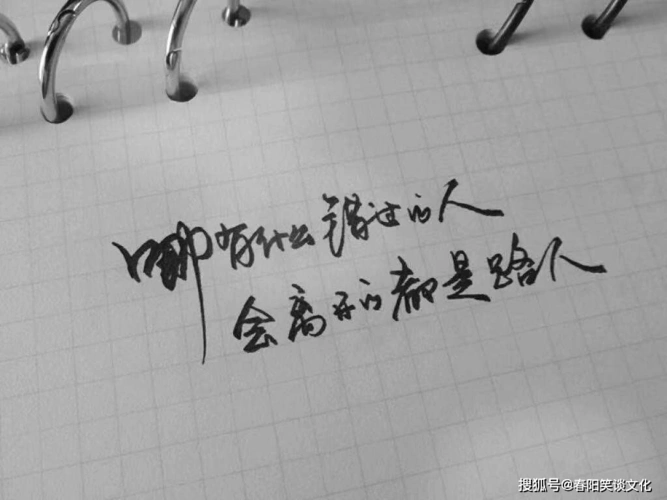 哪有什么错过的人
会离开的都是路人
搜狐号@春阳笑谈文化